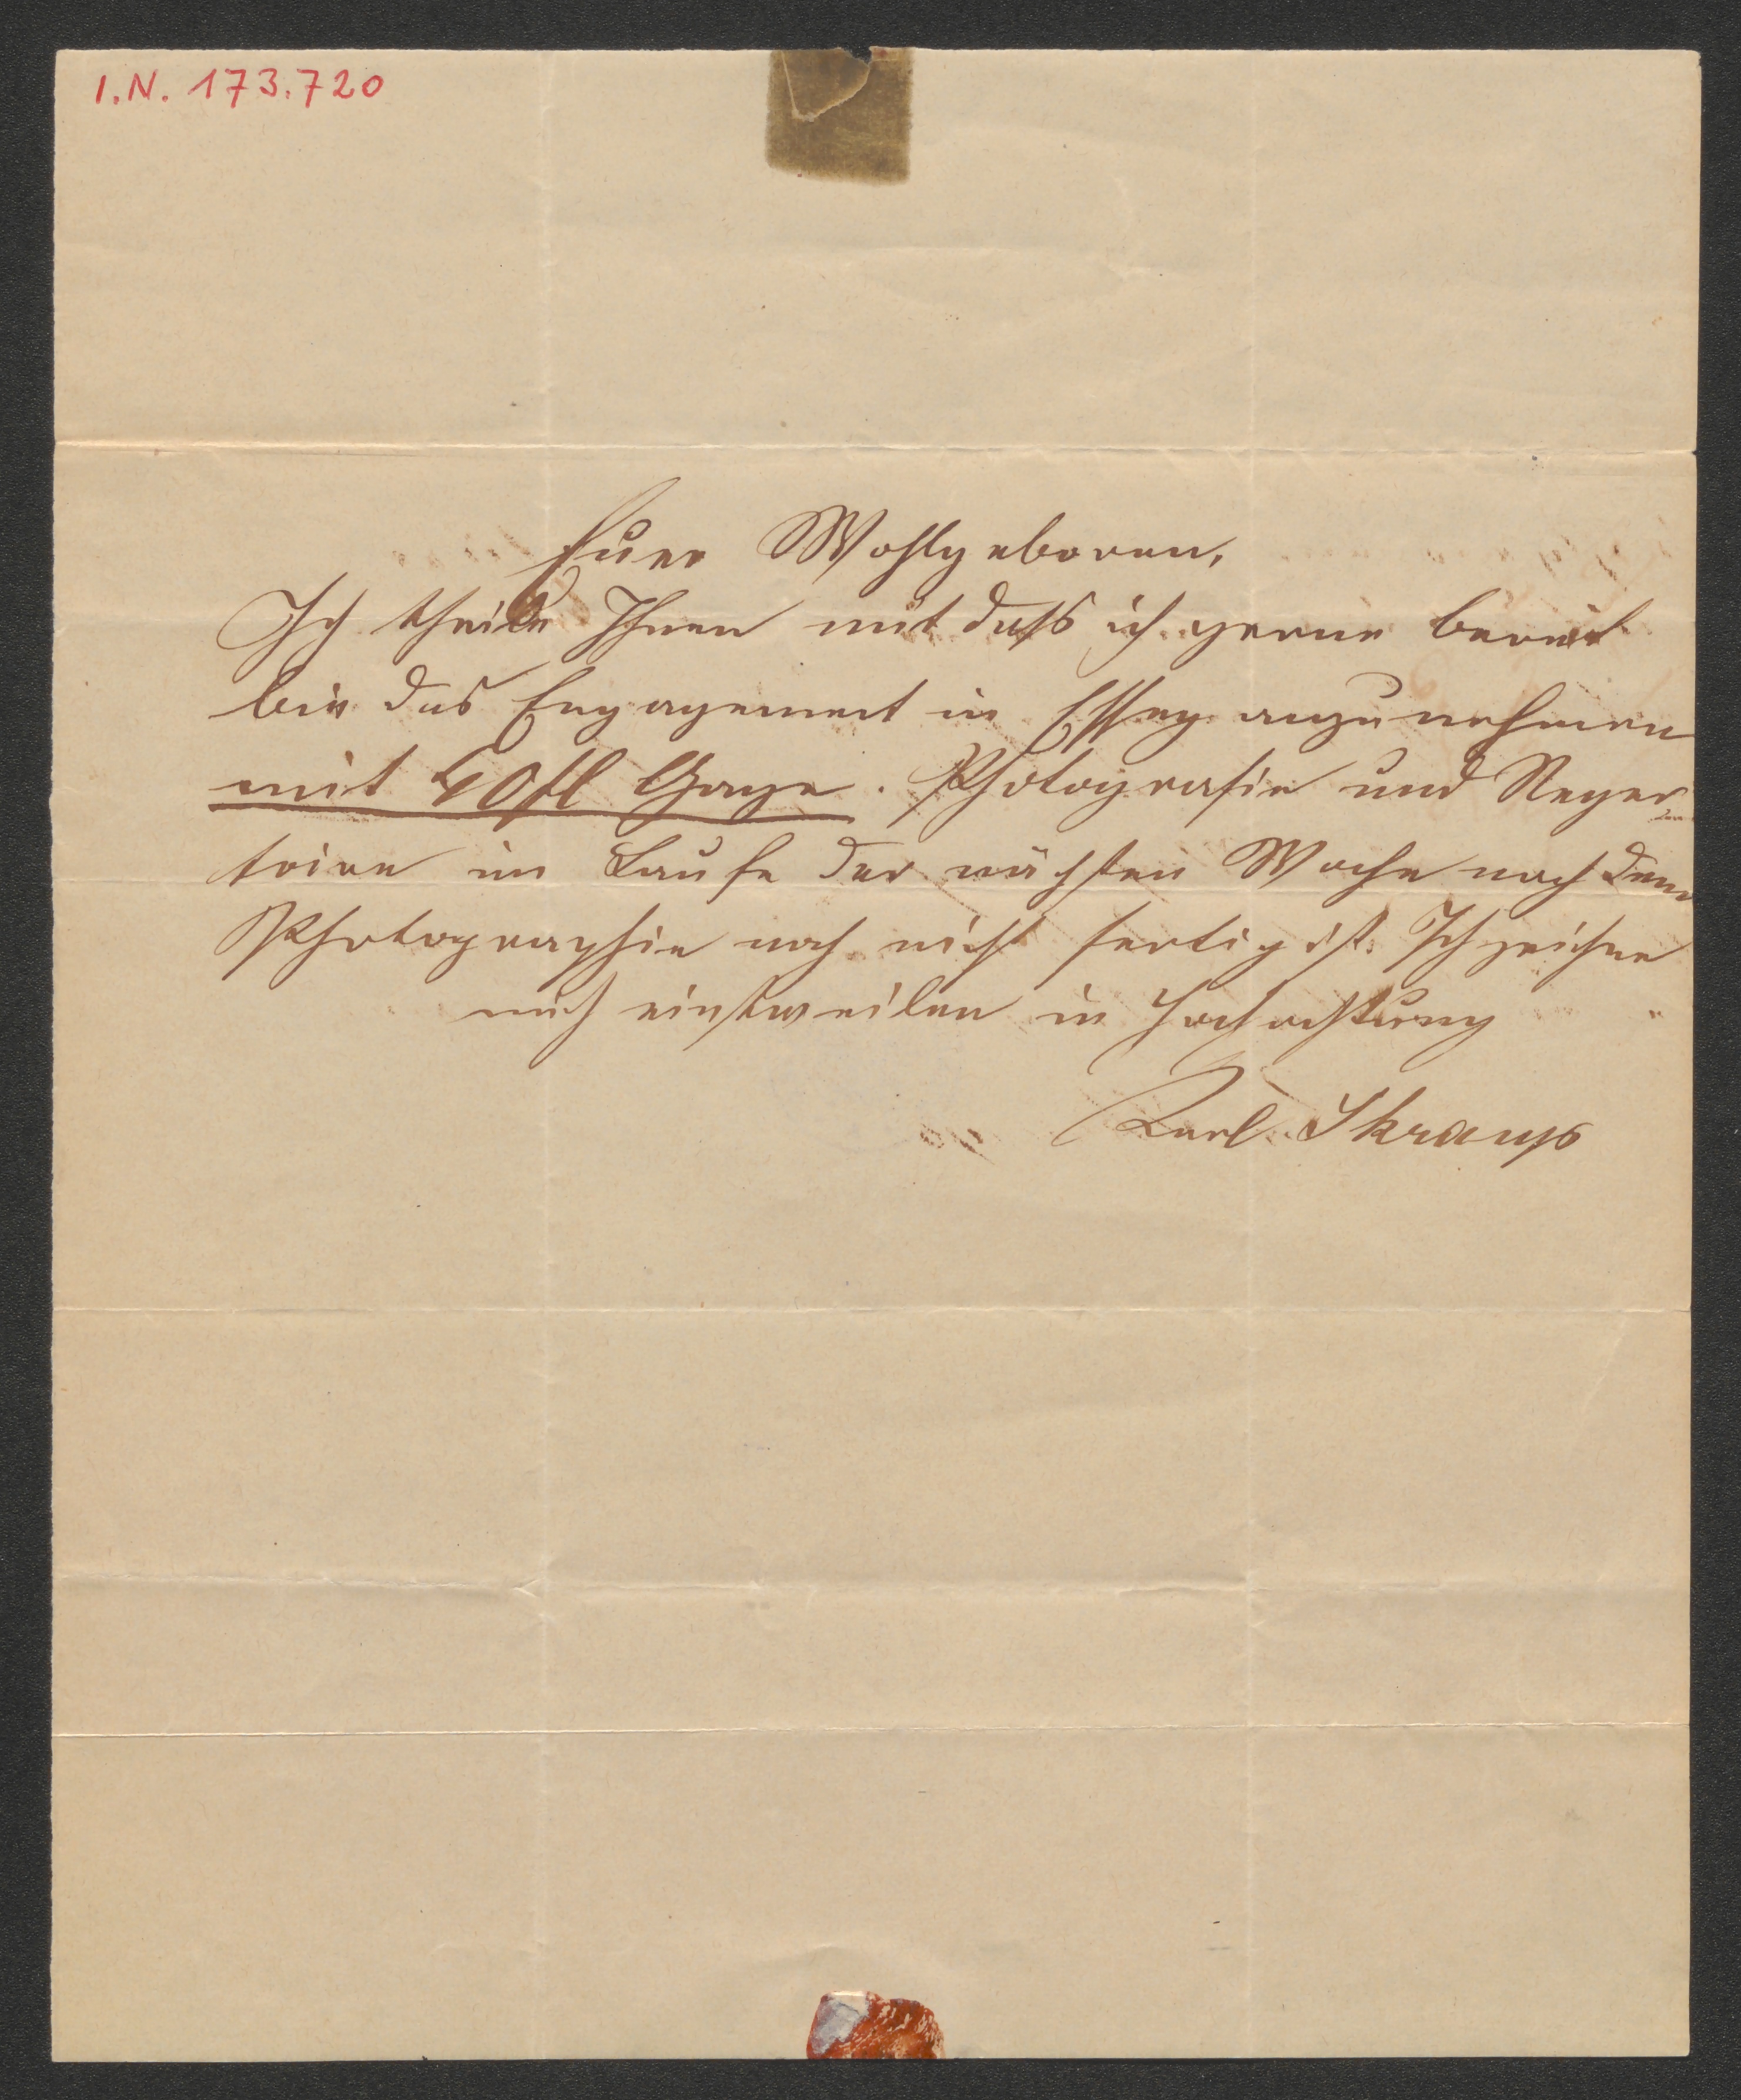 I.N. 173.720
Euer Wohlgeboren,
Ich theile Ihnen mit daß ich gerne bereit
bin das Engagement in Esseg anzunehmen
mit 40 fl Gage. Photografie und Reper-
toire im Laufe der nächsten Woche nach dem
Photographie noch nicht fertig ist. Ich zeichne
mich einstweilen in Hochachtung
Karl Skraup